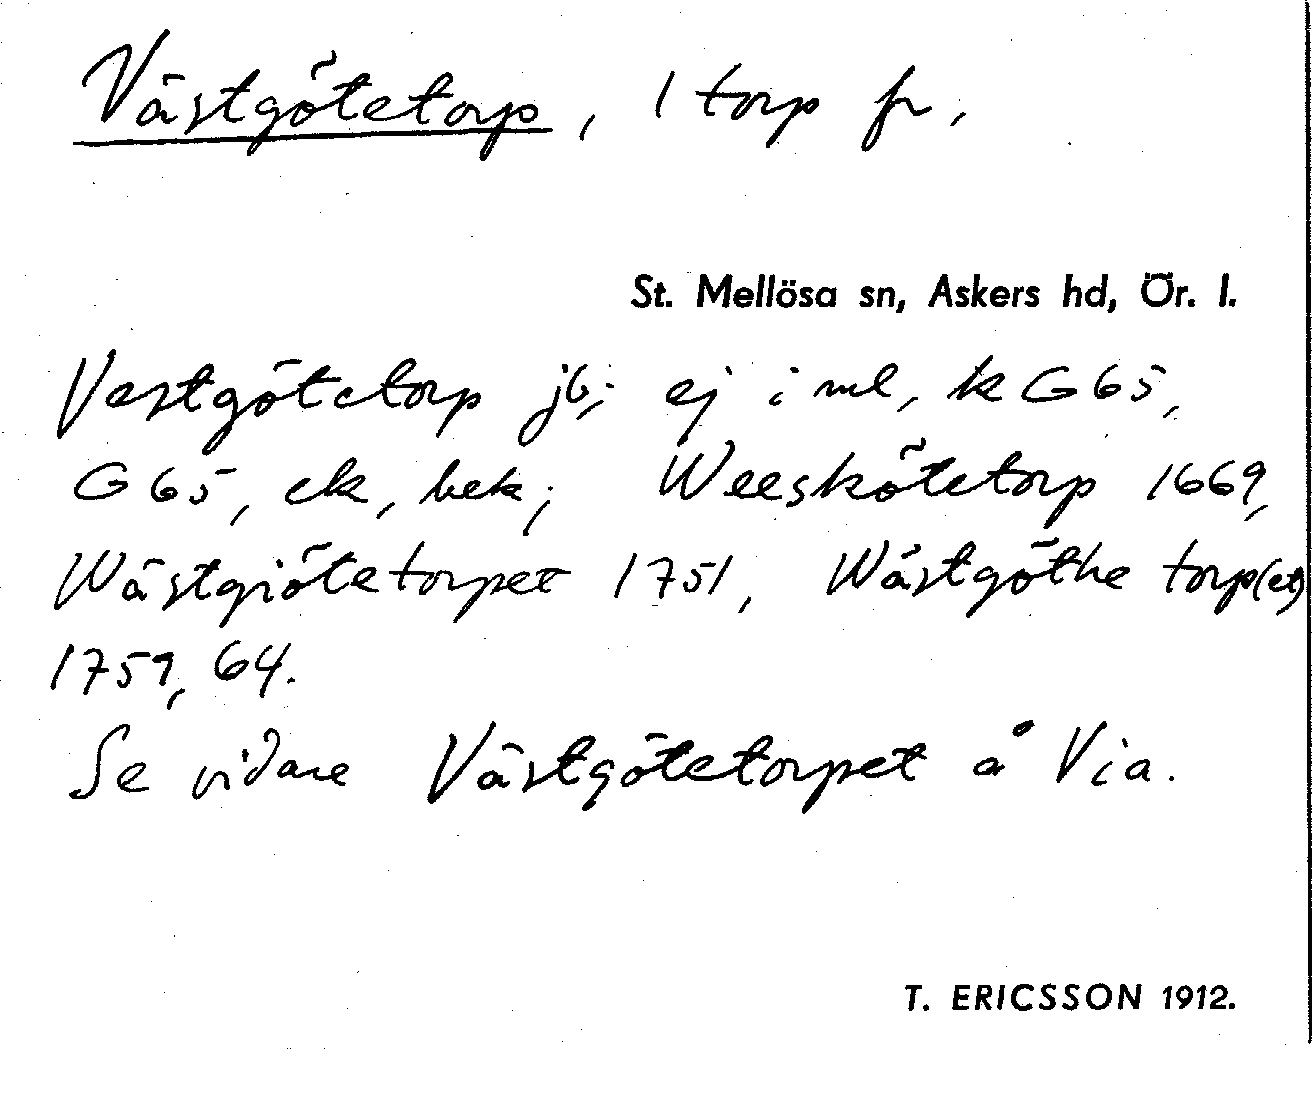 Västgötetorp, 1 torp fr,
St. Mellösa sn, Askers hd, Ör. l.
Vestgötetorp jb; ej i ml, k G65,
G65, ek, hek; Weeskötetorp 1669,
Wästgiötetorpet 1751, Wästgöthe torp(et)
1759, 64.
Se vidare Västgötetorpet å Via.
T. ERICSSON 1912.